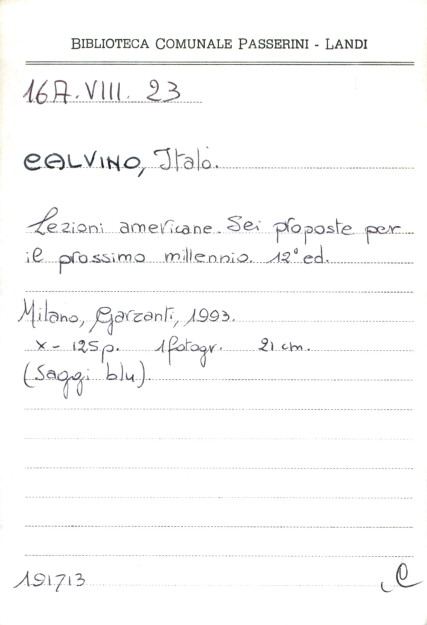 BIBLIOTECA COMUNALE PASSERINI - LANDI
16A.VIII. 23
CALVINO, Italo.
Lezioni americane. Sei proposte per
il prossimo millennio. 12° ed.
Milano, Garzanti, 1993.
X - 125 p. 1 fotogr. 21 cm.
(Saggi blu).
191713